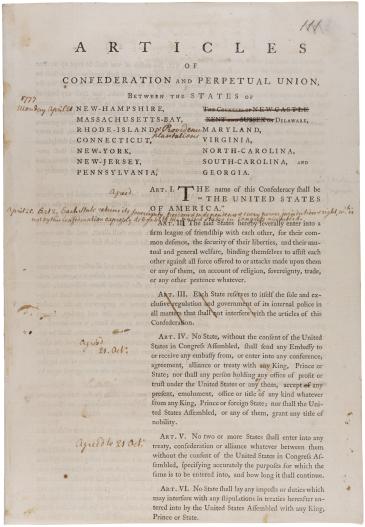 111
ARTICLES
OF
CONFEDERATION AND PERPETUAL UNION,
BETWEEN THE STATES OF
1777
Monday April 21
NEW-HAMPSHIRE, THE COUNTIES OF NEW-CASTLE
MASSACHUSETTS-BAY, KENT AND SUSSEX ON DELAWARE,
RHODE-ISLAND & Providence plantations MARYLAND,
CONNECTICUT, VIRGINIA,
NEW-YORK, NORTH-CAROLINA,
NEW-JERSEY, SOUTH-CAROLINA, AND
PENNSYLVANIA, GEORGIA.
Agreed ART. I. THE name of this Confederacy shall be
"THE UNITED STATES
OF AMERICA."
April 25. Art 2. Each State retains its sovereignty, freedom & independence & every power, jurisdiction & right wch is
not by this confederation expressly delegated to the United States in Congress assembled.
ART. II. The said States hereby severally enter into a
firm league of friendship with each other, for their com-
mon defence, the security of their liberties, and their mu-
tual and general welfare, binding themselves to assist each
other against all force offered to or attacks made upon them
or any of them, on account of religion, sovereignty, trade,
or any other pretence whatever.
ART. III. Each State reserves to itself the sole and ex-
clusive regulation and government of its internal police in
all matters that shall not interfere with the articles of this
Confederation.
Agreed
21. Octr.
ART. IV. No State, without the consent of the United
States in Congress Assembled, shall send any Embassy to
or receive any embassy from, or enter into any conference,
agreement, alliance or treaty with any King, Prince or
State; nor shall any person holding any office of profit or
trust under the United States or any of them, accept of any
present, emolument, office or title of any kind whatever
from any King, Prince or foreign State; nor shall the Uni-
ted States Assembled, or any of them, grant any title of
nobility.
Agreed to 21 Octr.
ART. V. No two or more States shall enter into any
treaty, confederation or alliance whatever between them
without the consent of the United States in Congress As-
sembled, specifying accurately the purposes for which the
same is to be entered into, and how long it shall continue.
ART. VI. No State shall lay any imposts or duties which
may interfere with any stipulations in treaties hereafter en-
tered into by the United States Assembled with any King,
Prince or State.